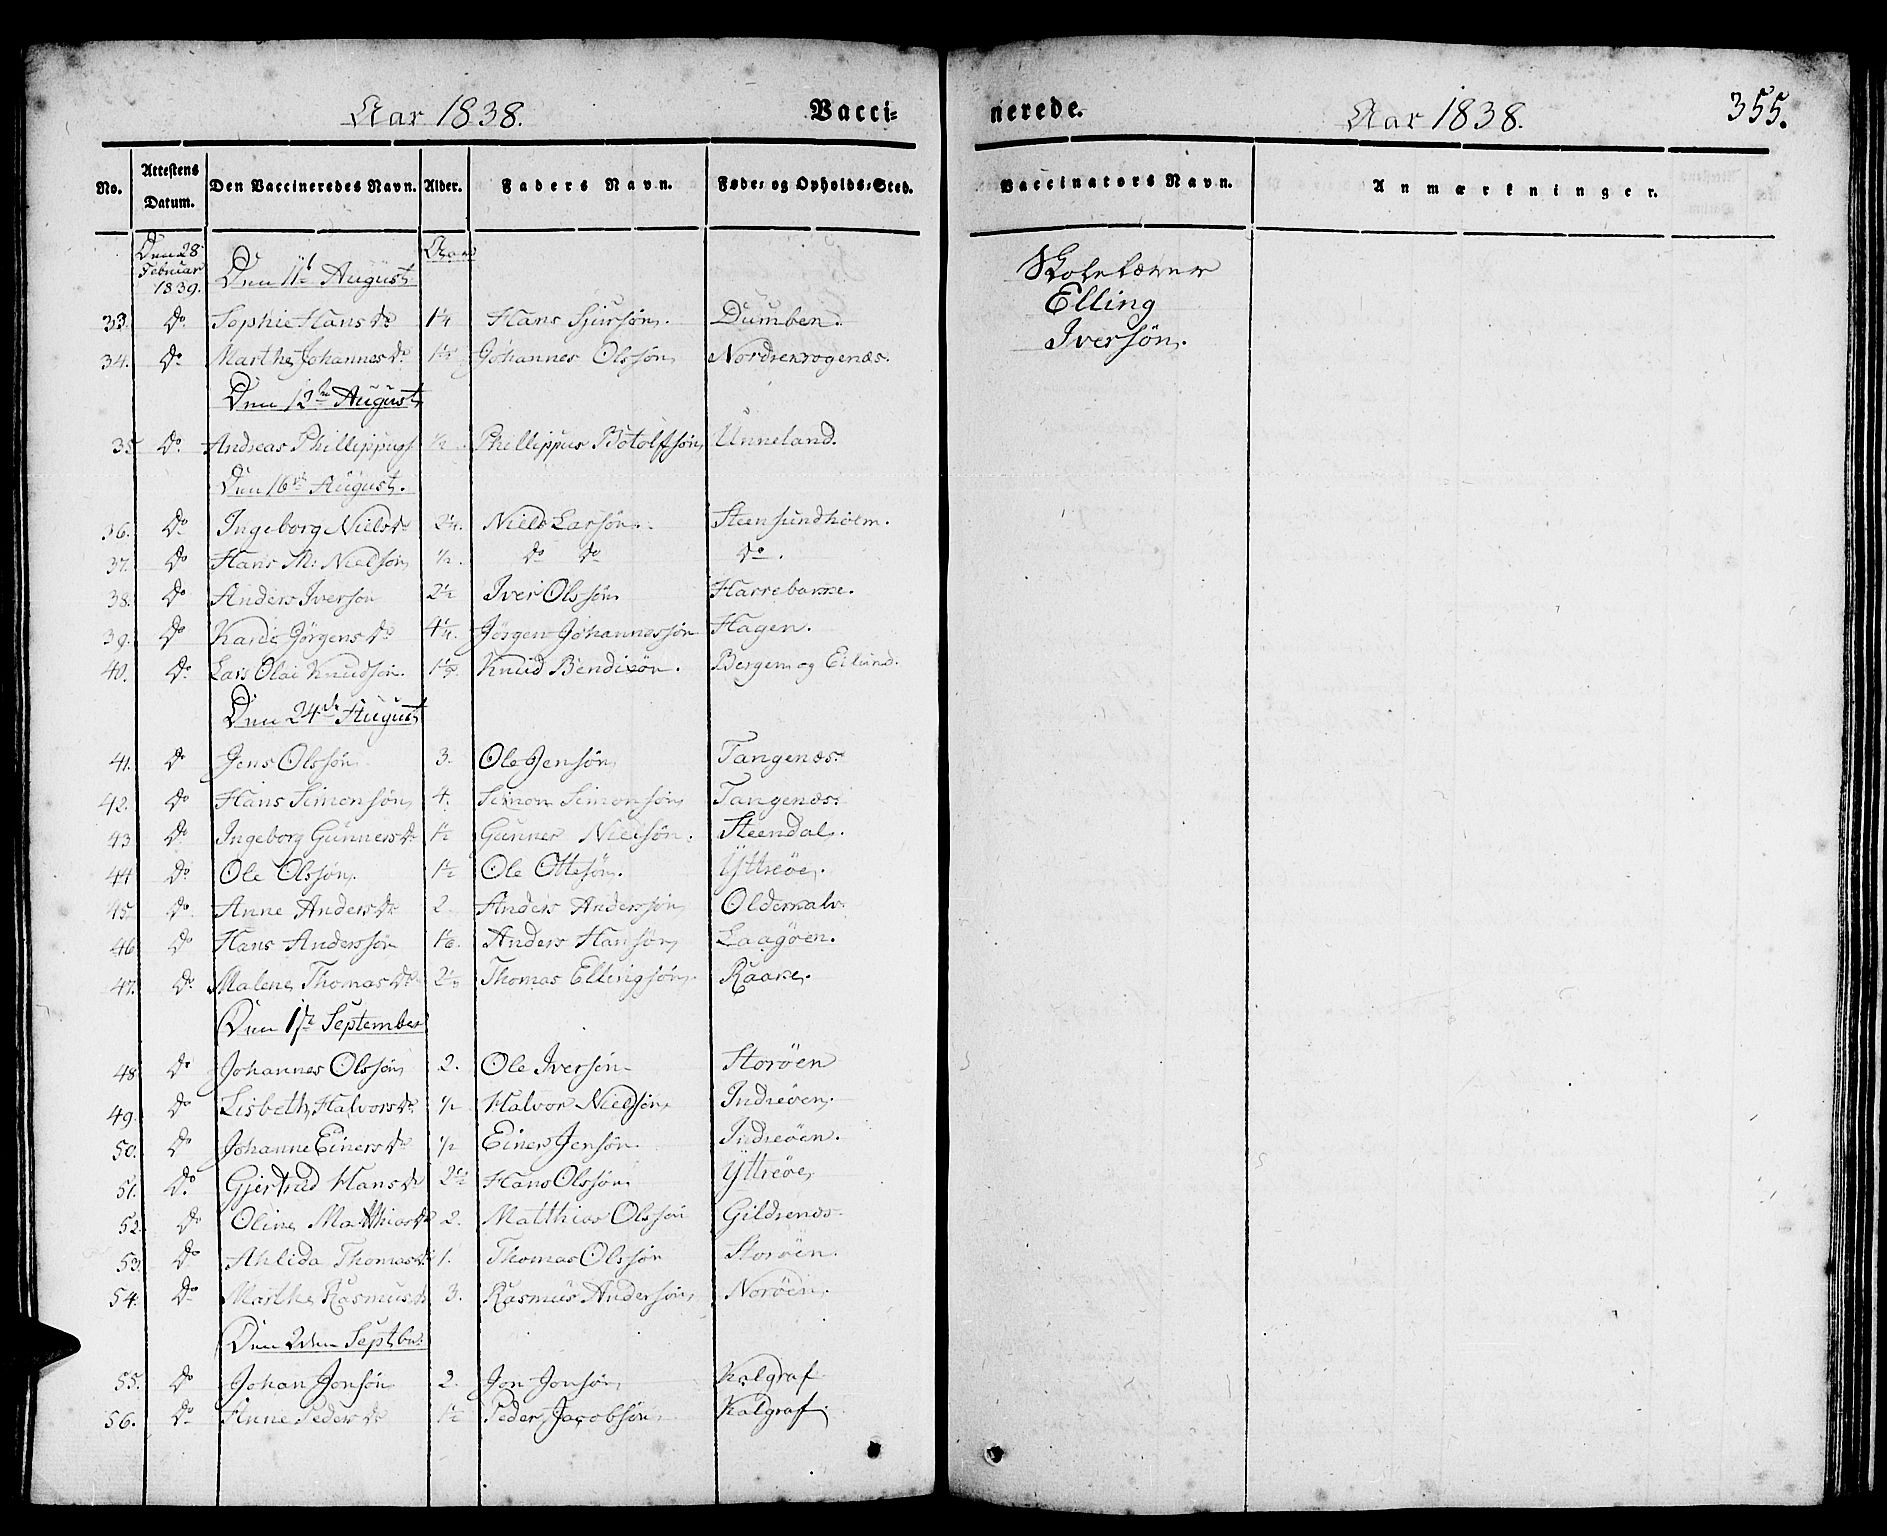 Aar 1838. Vacci- nerede. Aar 1838. 355.
No. Attestens Datum. Den Vaccineredes Navn. Alder. Faders Navn. Føde- og Opholds-Sted. Vaccinators Navn. Anmærkninger.
Den 28 Februar 1839. Den 11te August Aar Skolelærer
Elling
Iversøn.
33. Do Sophie Hansdr 1¼ Hans Sjursøn. Dumben.
34. Do Marthe Johannesdr Johannes Olssøn Nordrevogenæs.
Den 12te August
35 Do Andreas Phillippuss ½ Phillippus Botolfsøn Unneland.
Den 16de August.
36. Do Ingeborg Nielsdr 2¼. Niels Larsøn. Steensundholm.
37. Do Hans M: Nielsøn ½. do do do.
38. Do Anders Iversøn 2½ Iver Olssøn Harrebakke.
39. Do Jørgensdr 4¼. Jørgen Johannessøn Hagen.
40. Do Lars Olai Knudsøn. Knud Bendixøn. Bergen og Eilund.
Den 24de August
41. Do Jens Olssøn 3. Ole Jensøn Tangenæs.
42. Do Hans Simonsøn 4. Simon Simonsøn Tangenæs.
43 Do Ingeborg Gunnersdr 1½ Gunner Nielsøn. Steendal.
44 Do Ole Olssøn. 1½ Ole Ottesøn. Yttreøe.
45. Do Anne Andersdr 2 Anders Anderssøn
46 Do Hans Anderssøn Anders Hansøn Laagøen.
47. Do Malene Thomasdr Thomas Ellingsøn. Raake.
Den 1te September
48 Do Johannes Olssøn 2. Ole Iversøn Storøen
49. Do Lisbeth Halvorsdr ½ Halvor Nielsøn Indreøen.
50. Do Johanne Einersdr ½ Einer Jensøn. Indreøen.
51. Do Gjertrud Hansdr 2½ Hans Olssøn Yttreøe
52. Do Oline Matthiasdr 2. Matthias Olssøn Gildrenæs
53. Do Ahlida Thomasdr 1. Thomas Olssøn Storøen.
54. Do Marthe Rasmusdr 3. Rasmus Andersøn Norøen.
Den 2den Septbr.
55. Do Johan Jonsøn 2. Jon Jonsøn Kalgraf
56. Do Anne Pedersdr 1½ Peder Jacobsøn Kalgraf.